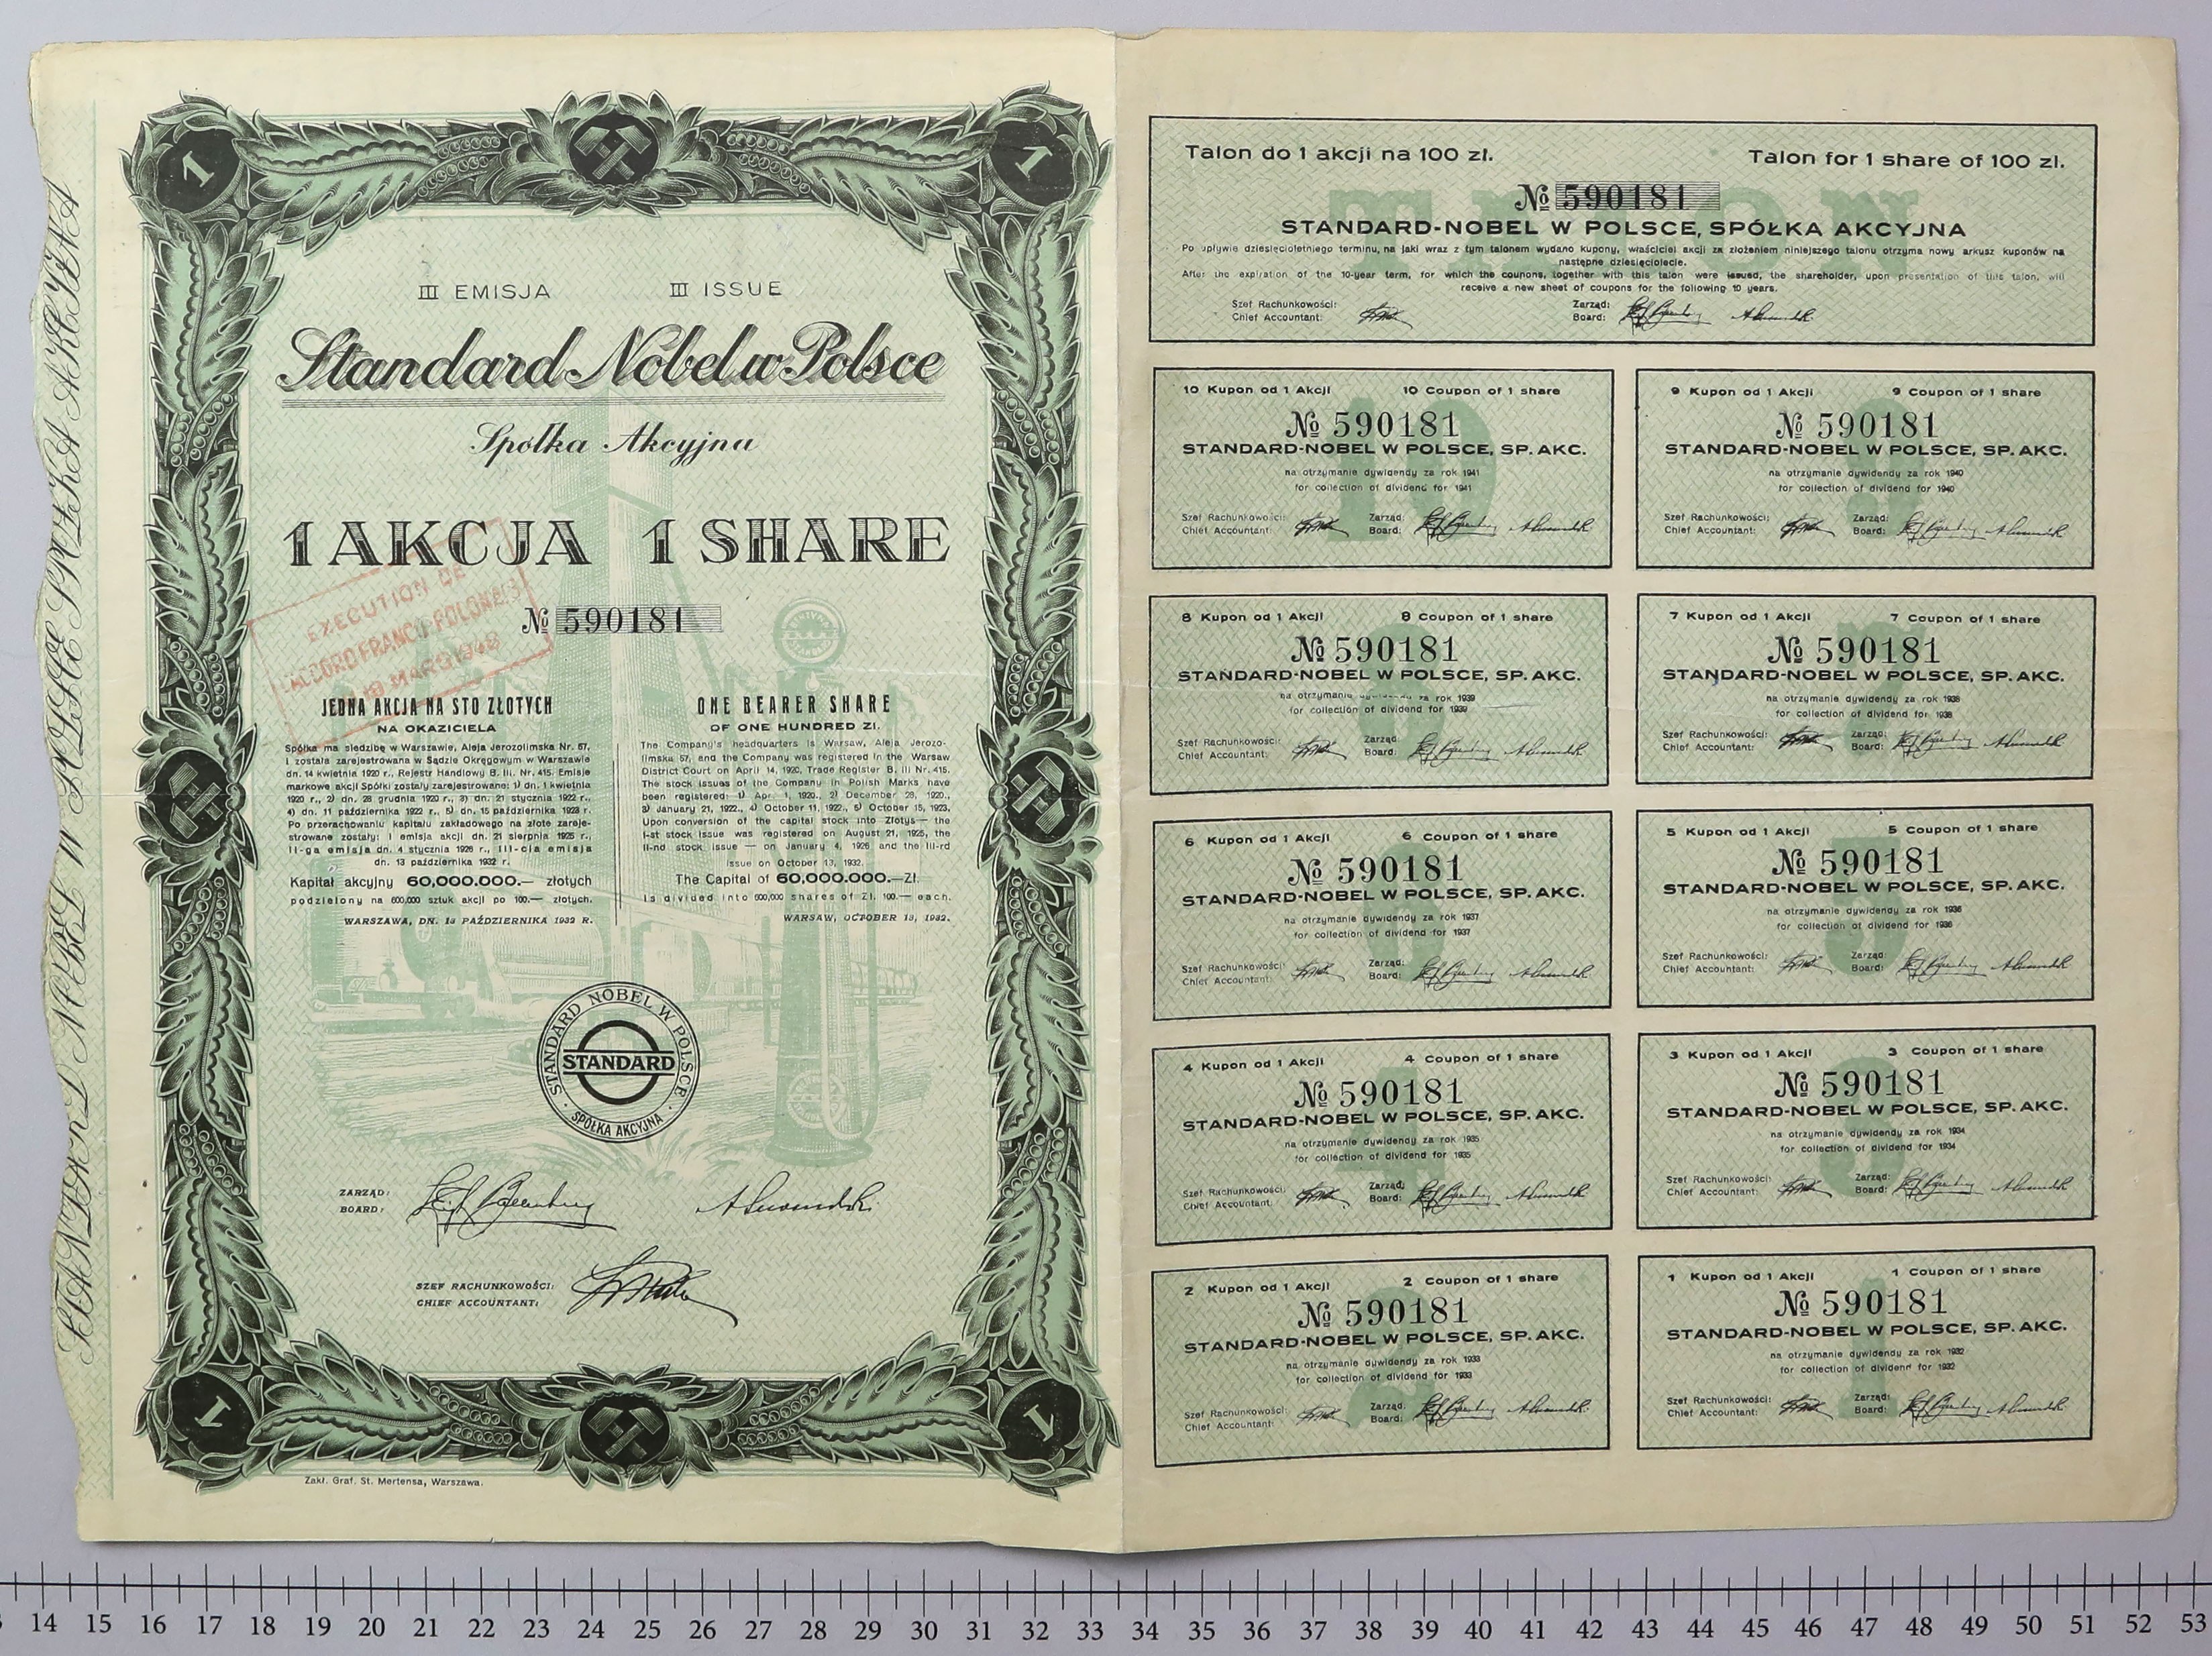 STANDARD NOBEL W POLSCE SPÓŁKA AKCYJNA
1
1
III EMISJA III ISSUE
Standard-Nobel w Polsce
Spółka Akcyjna
1 AKCJA 1 SHARE
EXECUTION DE
L'ACCORD FRANCO-POLONAIS
19 MARS 1948
№ 590181
JEDNA AKCJA NA STO ZŁOTYCH
NA OKAZICIELA
Spółka ma siedzibę w Warszawie, Aleja Jerozolimska Nr. 57,
i została zarejestrowana w Sądzie Okręgowym w Warszawie
dn. 14 kwietnia 1920 r., Rejestr Handlowy B. III. Nr. 415. Emisje
markowe akcji Spółki zostały zarejestrowane: 1) dn. 1 kwietnia
1920 r., 2) dn. 28 grudnia 1920 r., 3) dn. 21 stycznia 1922 r.,
4) dn. 11 października 1922 r., 5) dn. 15 października 1923 r.
Po przerachowaniu kapitału zakładowego na złote zareje-
strowane zostały: I emisja akcji dn. 21 sierpnia 1925 r.,
II-ga emisja dn. 4 stycznia 1926 r., III-cia emisja
dn. 13 października 1932 r.
Kapitał akcyjny 60,000.000.— złotych
podzielony na 600,000 sztuk akcji po 100.— złotych.
WARSZAWA, DN. 13 PAŹDZIERNIKA 1932 R.
ONE BEARER SHARE
OF ONE HUNDRED Zl.
The Company's headquarters is Warsaw, Aleja Jerozo-
limska 57, and the Company was registered in the Warsaw
District Court on April 14, 1920, Trade Register B. III Nr. 415.
The stock issues of the Company in Polish Marks have
been registered: 1) Apr. 1, 1920., 2) December 28, 1920.,
3) January 21, 1922., 4) October 11, 1922., 5) October 15, 1923.
Upon conversion of the capital stock into Zlotys— the
I-st stock issue was registered on August 21, 1925, the
II-nd stock issue — on January 4, 1926 and the III-rd
issue on October 13, 1932.
The Capital of 60,000.000.—Zl.
is divided into 600,000 shares of Zl. 100.— each.
WARSAW, OCTOBER 13, 1932.
STANDARD NOBEL W POLSCE
STANDARD
SPÓŁKA AKCYJNA
ZARZĄD:
BOARD:
SZEF RACHUNKOWOŚCI:
CHIEF ACCOUNTANT:
1
1
Zakł. Graf. St. Mertensa, Warszawa.
TALON
Talon do 1 akcji na 100 zł. Talon for 1 share of 100 zl.
№ 590181
STANDARD-NOBEL W POLSCE, SPÓŁKA AKCYJNA
Po upływie dziesięcioletniego terminu, na jaki wraz z tym talonem wydano kupony, właściciel akcji za złożeniem niniejszego talonu otrzyma nowy arkusz kuponów na
następne dziesięciolecie.
After the expiration of the 10-year term, for which the coupons, together with this talon were issued, the shareholder, upon presentation of this talon, will
receive a new sheet of coupons for the following 10 years.
Szef Rachunkowości: Zarząd:
Chief Accountant: Board:
10 Kupon od 1 Akcji 10 Coupon of 1 share
№ 590181
STANDARD-NOBEL W POLSCE, SP. AKC.
na otrzymanie dywidendy za rok 1941
for collection of dividend for 1941
Szef Rachunkowości: Zarząd:
Chief Accountant: Board:
9 Kupon od 1 Akcji 9 Coupon of 1 share
№ 590181
STANDARD-NOBEL W POLSCE, SP. AKC.
na otrzymanie dywidendy za rok 1940
for collection of dividend for 1940
Szef Rachunkowości: Zarząd:
Chief Accountant: Board:
8 Kupon od 1 Akcji 8 Coupon of 1 share
№ 590181
STANDARD-NOBEL W POLSCE, SP. AKC.
na otrzymanie dywidendy za rok 1939
for collection of dividend for 1939
Szef Rachunkowości: Zarząd:
Chief Accountant: Board:
7 Kupon od 1 Akcji 7 Coupon of 1 share
№ 590181
STANDARD-NOBEL W POLSCE, SP. AKC.
na otrzymanie dywidendy za rok 1938
for collection of dividend for 1938
Szef Rachunkowości: Zarząd:
Chief Accountant: Board:
6 Kupon od 1 Akcji 6 Coupon of 1 share
№ 590181
STANDARD-NOBEL W POLSCE, SP. AKC.
na otrzymanie dywidendy za rok 1937
for collection of dividend for 1937
Szef Rachunkowości: Zarząd:
Chief Accountant: Board:
5 Kupon od 1 Akcji 5 Coupon of 1 share
№ 590181
STANDARD-NOBEL W POLSCE, SP. AKC.
na otrzymanie dywidendy za rok 1936
for collection of dividend for 1936
Szef Rachunkowości: Zarząd:
Chief Accountant: Board:
4 Kupon od 1 Akcji 4 Coupon of 1 share
№ 590181
STANDARD-NOBEL W POLSCE, SP. AKC.
na otrzymanie dywidendy za rok 1935
for collection of dividend for 1935
Szef Rachunkowości: Zarząd:
Chief Accountant: Board:
3 Kupon od 1 Akcji 3 Coupon of 1 share
№ 590181
STANDARD-NOBEL W POLSCE, SP. AKC.
na otrzymanie dywidendy za rok 1934
for collection of dividend for 1934
Szef Rachunkowości: Zarząd:
Chief Accountant: Board:
2 Kupon od 1 Akcji 2 Coupon of 1 share
№ 590181
STANDARD-NOBEL W POLSCE, SP. AKC.
na otrzymanie dywidendy za rok 1933
for collection of dividend for 1933
Szef Rachunkowości: Zarząd:
Chief Accountant: Board:
1 Kupon od 1 Akcji 1 Coupon of 1 share
№ 590181
STANDARD-NOBEL W POLSCE, SP. AKC.
na otrzymanie dywidendy za rok 1932
for collection of dividend for 1932
Szef Rachunkowości: Zarząd:
Chief Accountant: Board:
14 15 16 17 18 19 20 21 22 23 24 25 26 27 28 29 30 31 32 33 34 35 36 37 38 39 40 41 42 43 44 45 46 47 48 49 50 51 52 53